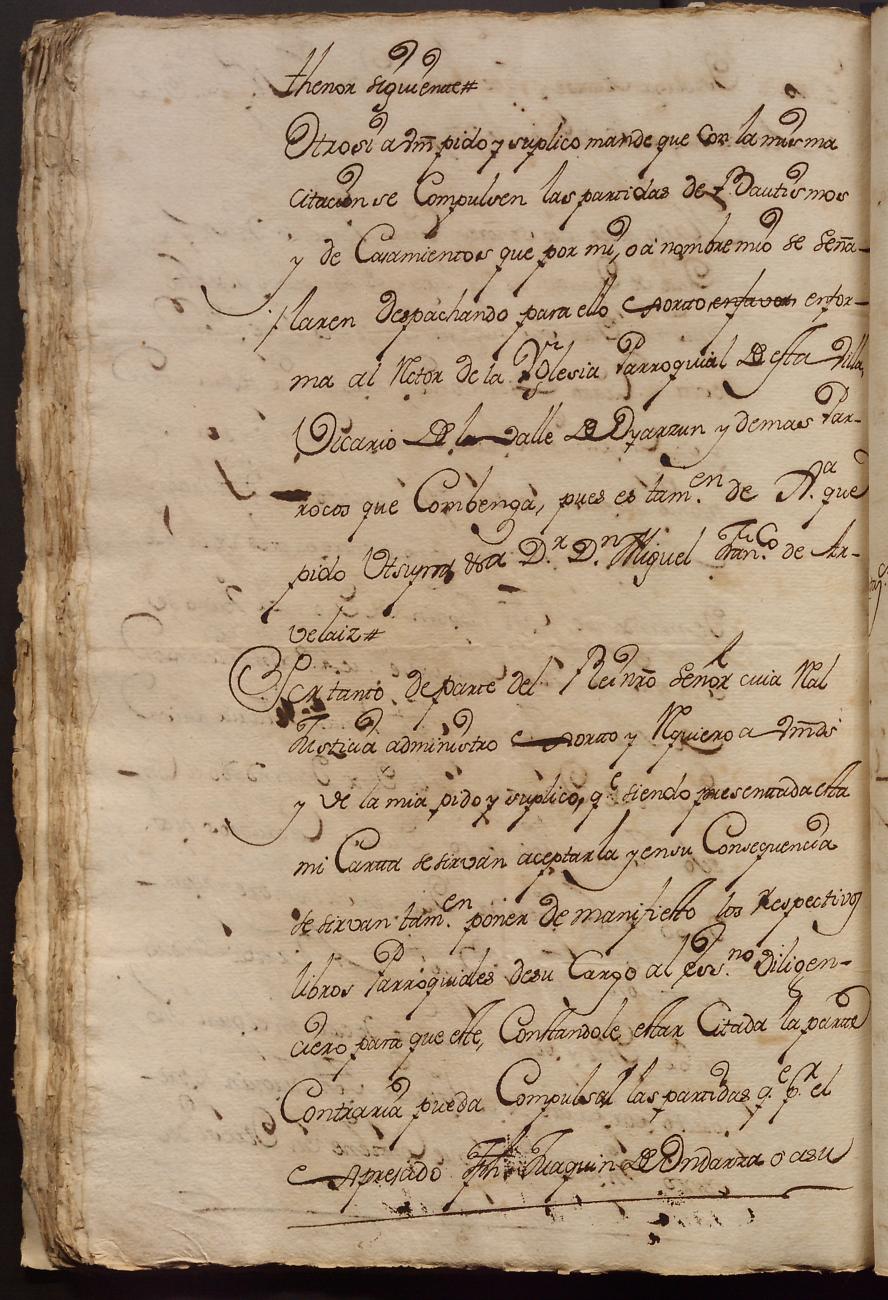 thenor siguiente#
Otrosi a Vm pido y suplico mande que con la misma
citacion se Compulsen las partidas de Bautismos
y de Casamientos que por mi, o a nombre mio se seña-
laren despachando para ello exorto enfavor enfor-
ma al Retor de la Yglesia Parroquial de esta Villa,
Vicario de el Valle de Oyarzun y demas Par-
rocos que Combenga, pues es tam.en de J.a que
pido Utsupra D.r D.n Miguel Fran.co de Ar-
velaiz#
Por tanto de parte del Rei nro señor cuia Rl
Justicia administro exorto y Requiero a Vmds
y de la mia pido y suplico, q.e siendo presentada esta
mi Carta se sirvan aceptarla y en su Consequencia
se sirvan tam.en poner de manifiesto los respectivos
libros Parroquiales de su Cargo al ess.no diligen-
ciero para que este, Constandole estar Citada la parte
Contraria pueda Compulsar las partidas q.e p.r el
expresado Juaquin de Indarza o a su